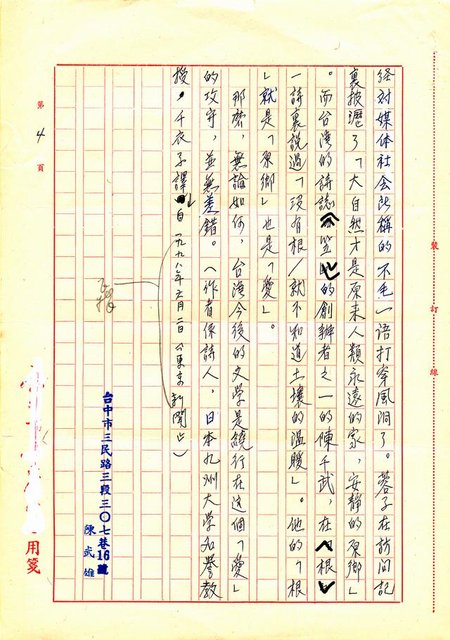 經對媒体社会所稱的不毛一語打穿風洞了。蓉子在訪問記
裏披瀝了「大自然才是原來人類永遠的家，安靜的原鄉」
。而台湾的詩誌《笠》的創辦者之一的陳千武，在《根》
一詩裏說過「沒有根／就不知道土壤的溫暖」。他的「根
」就是「原鄉」也是「愛」。
那麼，無論如何，台湾今後的文学是繞行在這個「愛」
的攻守，並無差錯。（作者係詩人，日本九州大学名譽教
授，千衣子譯自一九九八年六月一日《東京新聞》）
第 4 頁
裝 訂 線
台中市三民路三段三〇七巷16號
陳武雄
用箋